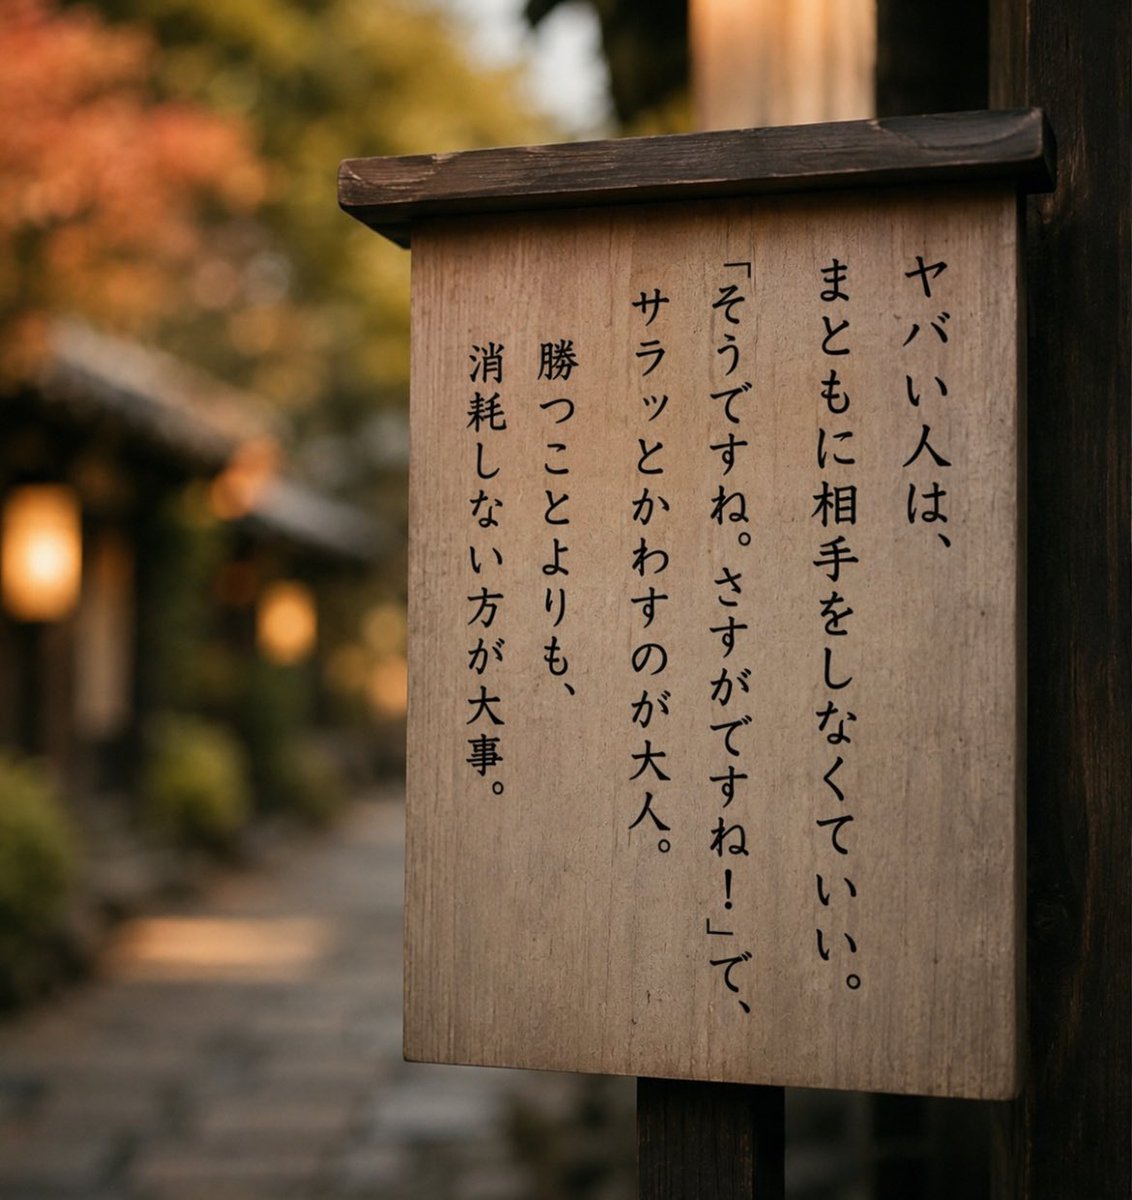 ヤバい人は、
まともに相手をしなくていい。
「そうですね。さすがですね！」で、
サラッとかわすのが大人。
勝つことよりも、
消耗しない方が大事。